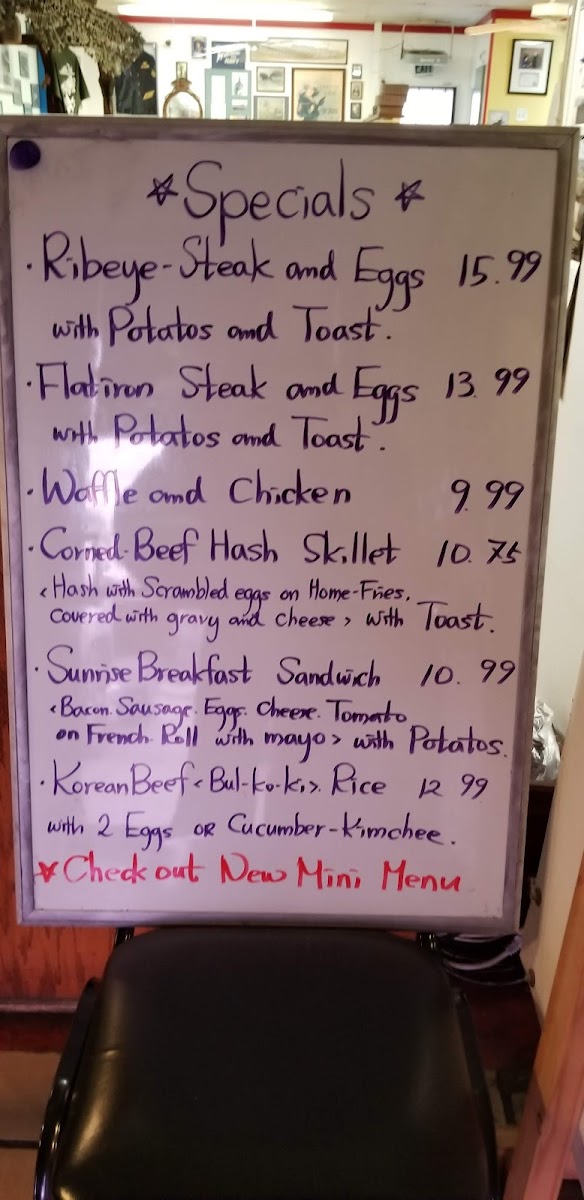 ☆Specials☆
·Ribeye-Steak and Eggs 15.99
with Potatos and Toast.
·Flatiron Steak and Eggs 13.99
with Potatos and Toast.
·Waffle and Chicken 9.99
·Corned-Beef Hash Skillet 10.75
<Hash with Scrambled eggs on Home-Fries.
Covered with gravy and cheese> with Toast.
·Sunrise Breakfast Sandwich 10.99
<Bacon. Sausage. Eggs. Cheese. Tomato
on French Roll with mayo> with Potatos.
·Korean Beef <Bul-ko-ki>. Rice 12 99
with 2 Eggs OR Cucumber-Kimchee.
☆Check out New Mini Menu